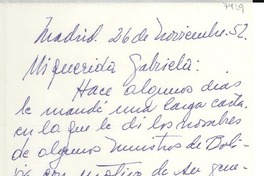 7439
Madrid. 26 de noviembre. 52.
Mi querida Gabriela:
Hace algunos días
le mandé una larga carta
en la que le di los nombres
de algunos ministros de Boli-
via con motivo de su gene-